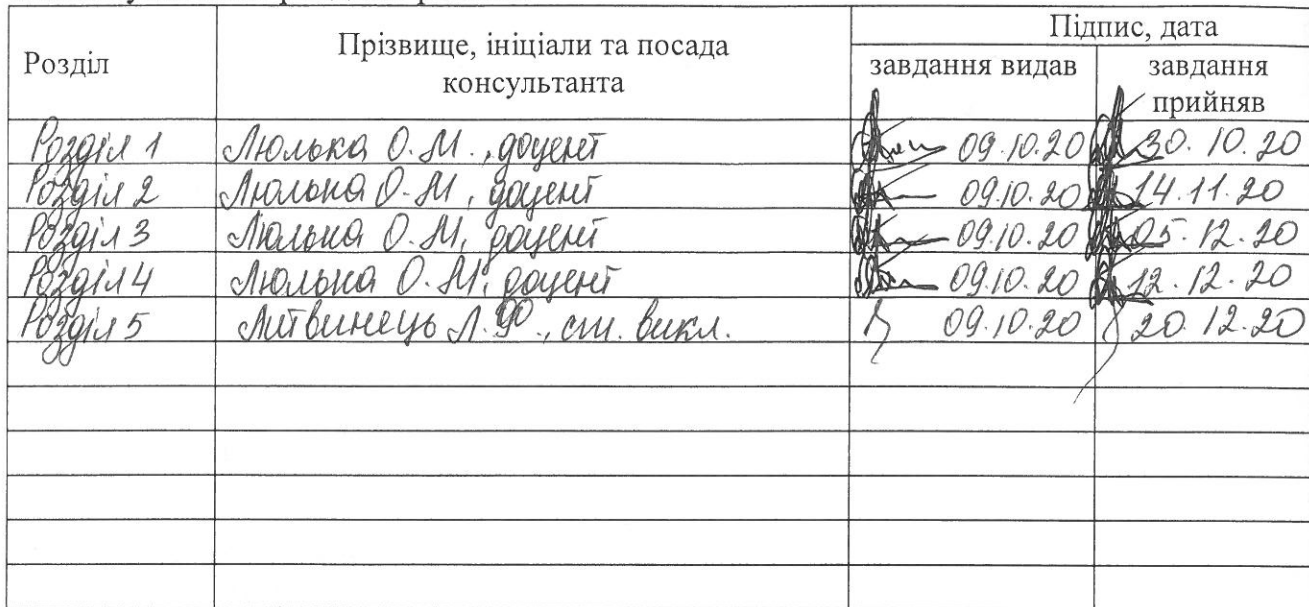 Розділ Прізвище, ініціали та посада консультанта Підпис, дата
завдання видав завдання прийняв
Розділ 1 Люлька О.М., доцент 09.10.20 30.10.20
Розділ 2 Люлька О.М, доцент 09.10.20 14.11.20
Розділ 3 Люлька О.М, доцент 09.10.20 05.12.20
Розділ 4 Люлька О.М, доцент 09.10.20 12.12.20
Розділ 5 Литвинець Л.Ф., ст. викл. 09.10.20 20.12.20